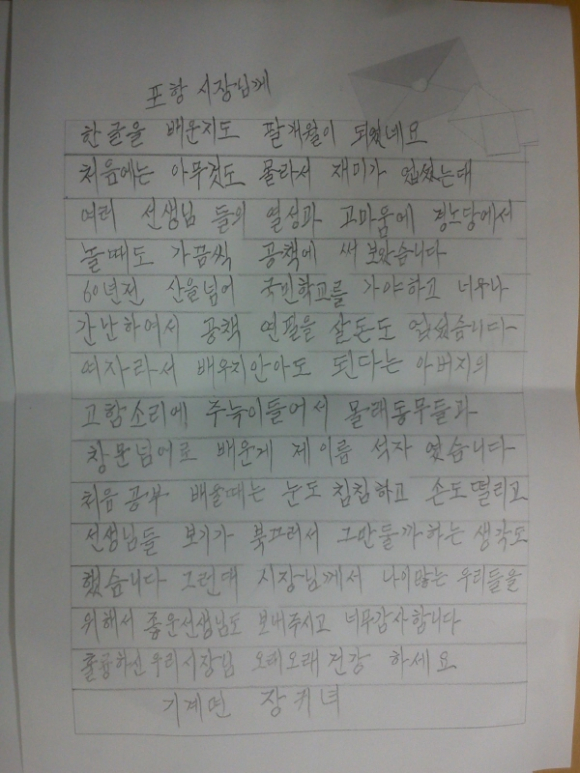 포항 시장님께
한글을 배운지도 팔개월이 되었네요
처음에는 아무것도 몰라서 재미가 업섰는대
여러 선생님 들의 열성과 고마움에 경노당에서
놀때도 가끔씩 공책에 써 보왔습니다
60년전 산을넘어 국민학교를 가야하고 너무나
간난하여서 공책 연필을 살돈도 업섰습니다
여자라서 배우지안아도 된다는 아버지의
고함소리에 주눅이들어서 몰래동무들과
창문넘어로 배운게 제이름 석자 였습니다
처음 공부 배울때는 눈도 침침하고 손도떨리고
선생님들 보기가 북끄러서 그만둘까하는 생각도
했습니다 그런대 시장님께서 나이많은 우리들을
위해서 좋은선생님도 보내주시고 너무감사합니다
훌륭하신우리시장님 오래오래건강 하세요
기계면 장귀녀